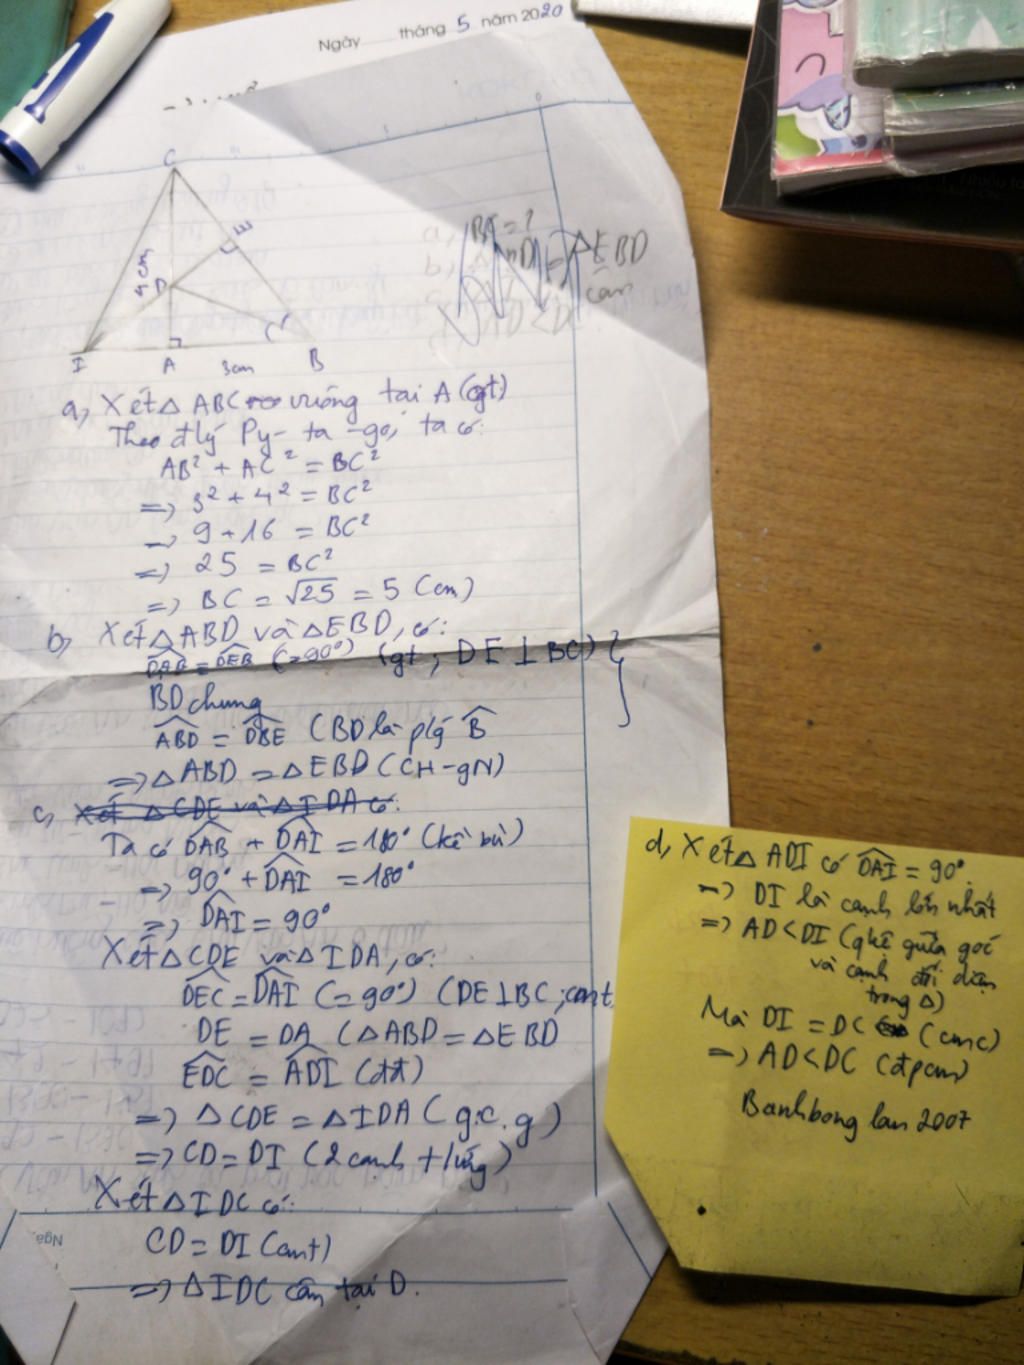 Ngày tháng 5 năm 2020
C
E
4cm
D
I
A
3cm
B
a, BC = ?
ΔEBD
cân
a, Xét Δ ABC vuông tại A (gt)
Theo đlý Py-ta-go, ta có:
AB² + AC² = BC²
=> 3² + 4² = BC²
=> 9 + 16 = BC²
=> 25 = BC²
=> BC = √25 = 5 (cm)
b, Xét Δ ABD và Δ EBD, có:
DAB = DEB (=90°) (gt; DE ⊥ BC)
BD chung
ABD = DBE (BD là p/g B
=> Δ ABD = Δ EBD (CH-gN)
c, Xét Δ CDE và Δ IDA có:
Ta có DAB + DAI = 180° (kề bù)
=> 90° + DAI = 180°
=> DAI = 90°
Xét Δ CDE và Δ IDA, có:
DEC = DAI (= 90°) (DE ⊥ BC; cmt
DE = DA (Δ ABD = Δ EBD
EDC = ADI (đđ)
=> Δ CDE = Δ IDA (g.c.g)
=> CD = DI (2 cạnh t/ứng)
Xét Δ IDC có:
CD = DI (cmt)
=> Δ IDC cân tại D.
d, Xét Δ ADI có DAI = 90°.
=> DI là cạnh lớn nhất
=> AD < DI (qhệ giữa góc
và cạnh đối diện
trong Δ)
Mà DI = DC (cmc)
=> AD < DC (đpcm)
Banhbong lan 2007